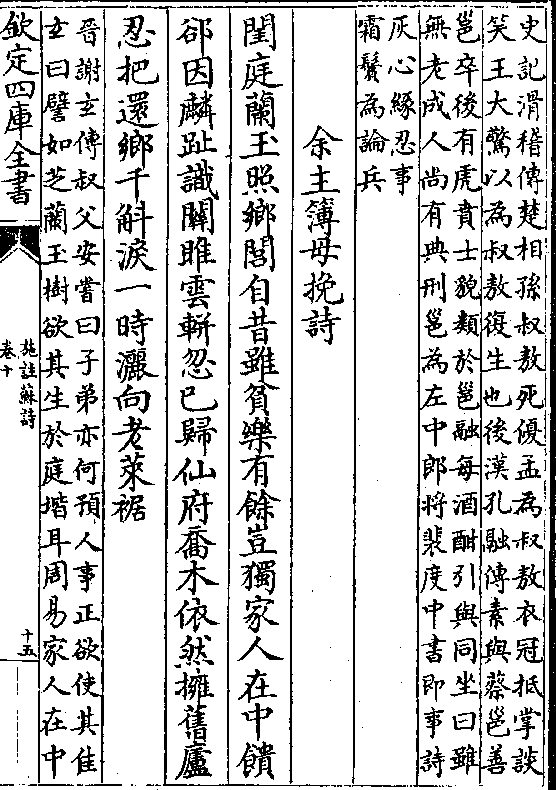 史記滑稽傳楚相孫叔敖死優孟為叔敖衣冠抵掌談
笑王大驚以為叔敖復生也後漢孔融傳素與蔡邕善
邕卒後有虎賁士貌類於邕融每酒酣引與同坐曰雖
無老成人尚有典刑邕為左中郎将裴度中書即事詩
灰心緣忍事
霜鬢為論兵
余主簿母挽詩
閨庭蘭玉照鄉閭自昔雖貧樂有餘豈獨家人在中饋
郤因麟趾識關雎雲軿忽已歸仙府喬木依然擁舊廬
忍把還鄉千斛淚一時灑向老萊裾
晉謝玄傳叔父安嘗曰子弟亦何預人事正欲使其佳
玄曰譬如芝蘭玉樹欲其生於庭堦耳周易家人在中
欽定四庫全書
施註蘇詩
卷十
十五